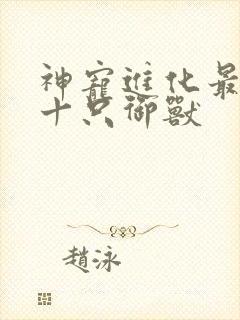 神寵進化最
十只御獸
趙泳